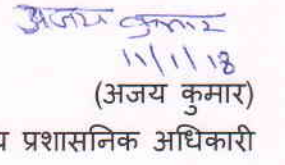 अजय कुमार
11/1/18
(अजय कुमार)
प्रशासनिक अधिकारी